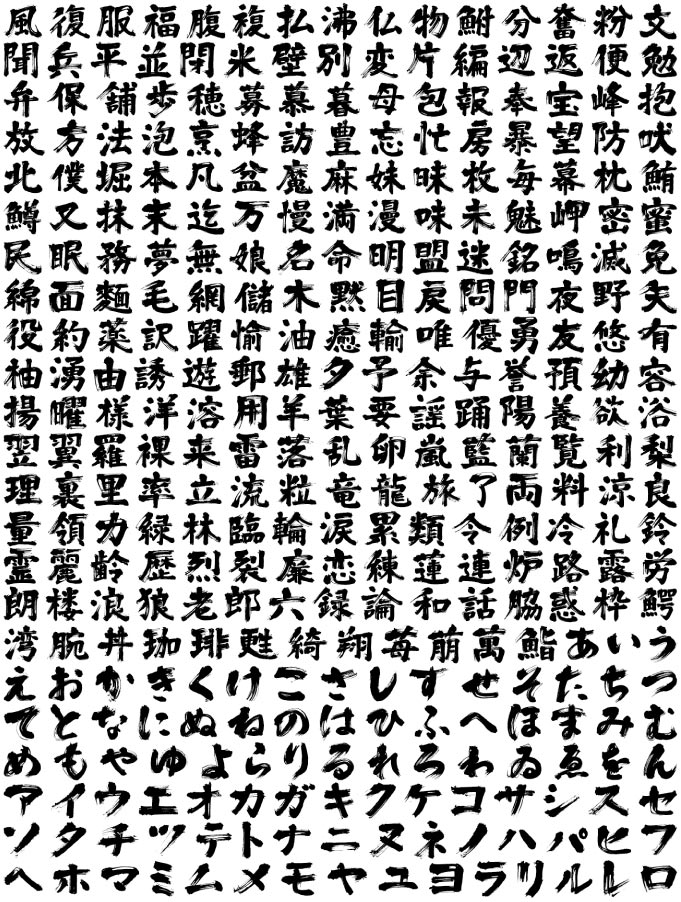 風復服福腹複払沸仏物鮒分奮粉文
聞兵平並閉米壁別変片編辺返便勉
弁保舗歩穂募慕暮母包報奉宝峰抱
放方法泡烹蜂訪豊忘忙房暴望防吠
北僕堀本凡盆魔麻妹昧枚毎幕枕鮪
鱒又抹末迄万慢満漫味未魅岬密蜜
民眠務夢無娘名命明盟迷銘鳴滅免
綿面麺毛網儲木黙目戻問門夜野矢
役約薬訳躍愉油癒輸唯優勇友悠有
柚湧由誘遊郵雄夕予余与誉預幼容
揚曜様洋溶用羊葉要謡踊陽養欲浴
翌翼羅裸来雷落乱卵嵐藍蘭覧利梨
理裏里率立流粒竜龍旅了両料涼良
量領力緑林臨輪涙累類令例冷礼鈴
霊麗齢歴烈裂廉恋練蓮連炉路露労
朗楼浪狼老郎六録論和話脇惑枠鰐
湾腕丼珈琲甦綺翔苺萠萬鮨あいう
えおかきくけこさしすせそたちつ
てとなにぬねのはひふへほまみむ
めもやゆよらりるれろわゐゑをん
アイウエオカガキクケコサシスセ
ソタチツテトナニヌネノハパヒフ
ヘホマミムメモヤユヨラリルレロ